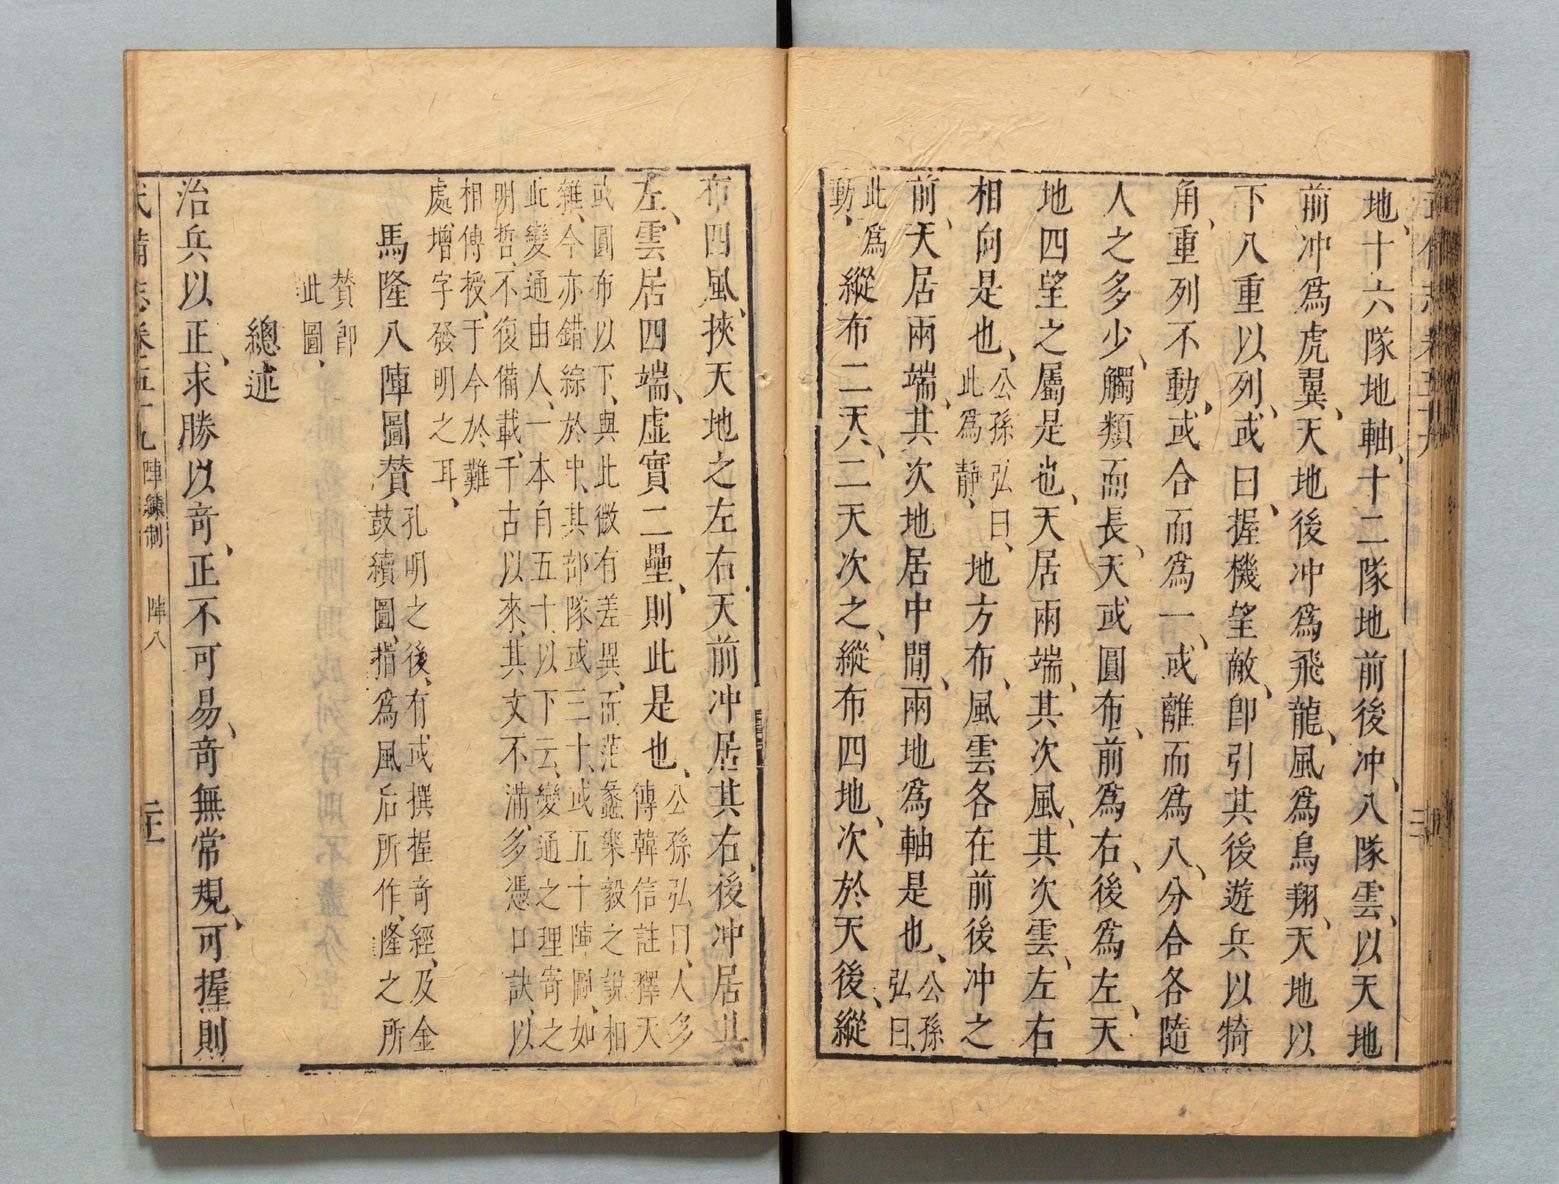 地、十六隊地軸、十二隊地前後冲、八隊雲、以天地
前冲爲虎翼、天地後冲爲飛龍、風爲鳥翔、天地以
下八重以列、或曰、握機望敵、卽引其後遊兵以犄
角、重列不動、或合而爲一、或離而爲八、分合各隨
人之多少、觸類而長、天或圓布、前爲右、後爲左、天
地四望之屬是也、天居兩端、其次風、其次雲、左右
相向是也、公孫弘曰、此爲靜、地方布、風雲各在前後冲之
前、天居兩端、其次地居中間、兩地爲軸是也、公孫弘曰、
此爲動、縱布二天、二天次之、縱布四地、次於天後、縱
布四風、挾天地之左右、天前冲居其右、後冲居其
左、雲居四端、虛實二壘、則此是也、公孫弘曰、人多傳韓信註釋天
或圓布以下、與此微有差異、而范蠡樂毅之說相
雜、今亦錯綜於中、其部隊或三十、或五十陣圖、如
此變通由人、一本自五十以下云、變通之理寄之
明哲、不復備載、千古以來、其文不滿、多憑口訣、以
相傳授、于今於難
處、增字發明之耳、
馬隆八陣圖贊孔明之後、有或撰握奇經、及金
鼓續圖、指爲風后所作、隆之所
贊卽
此圖、
總述
治兵以正、求勝以奇、正不可易、奇無常規、可握則
武備志卷五十九 陣練制 陣八 二